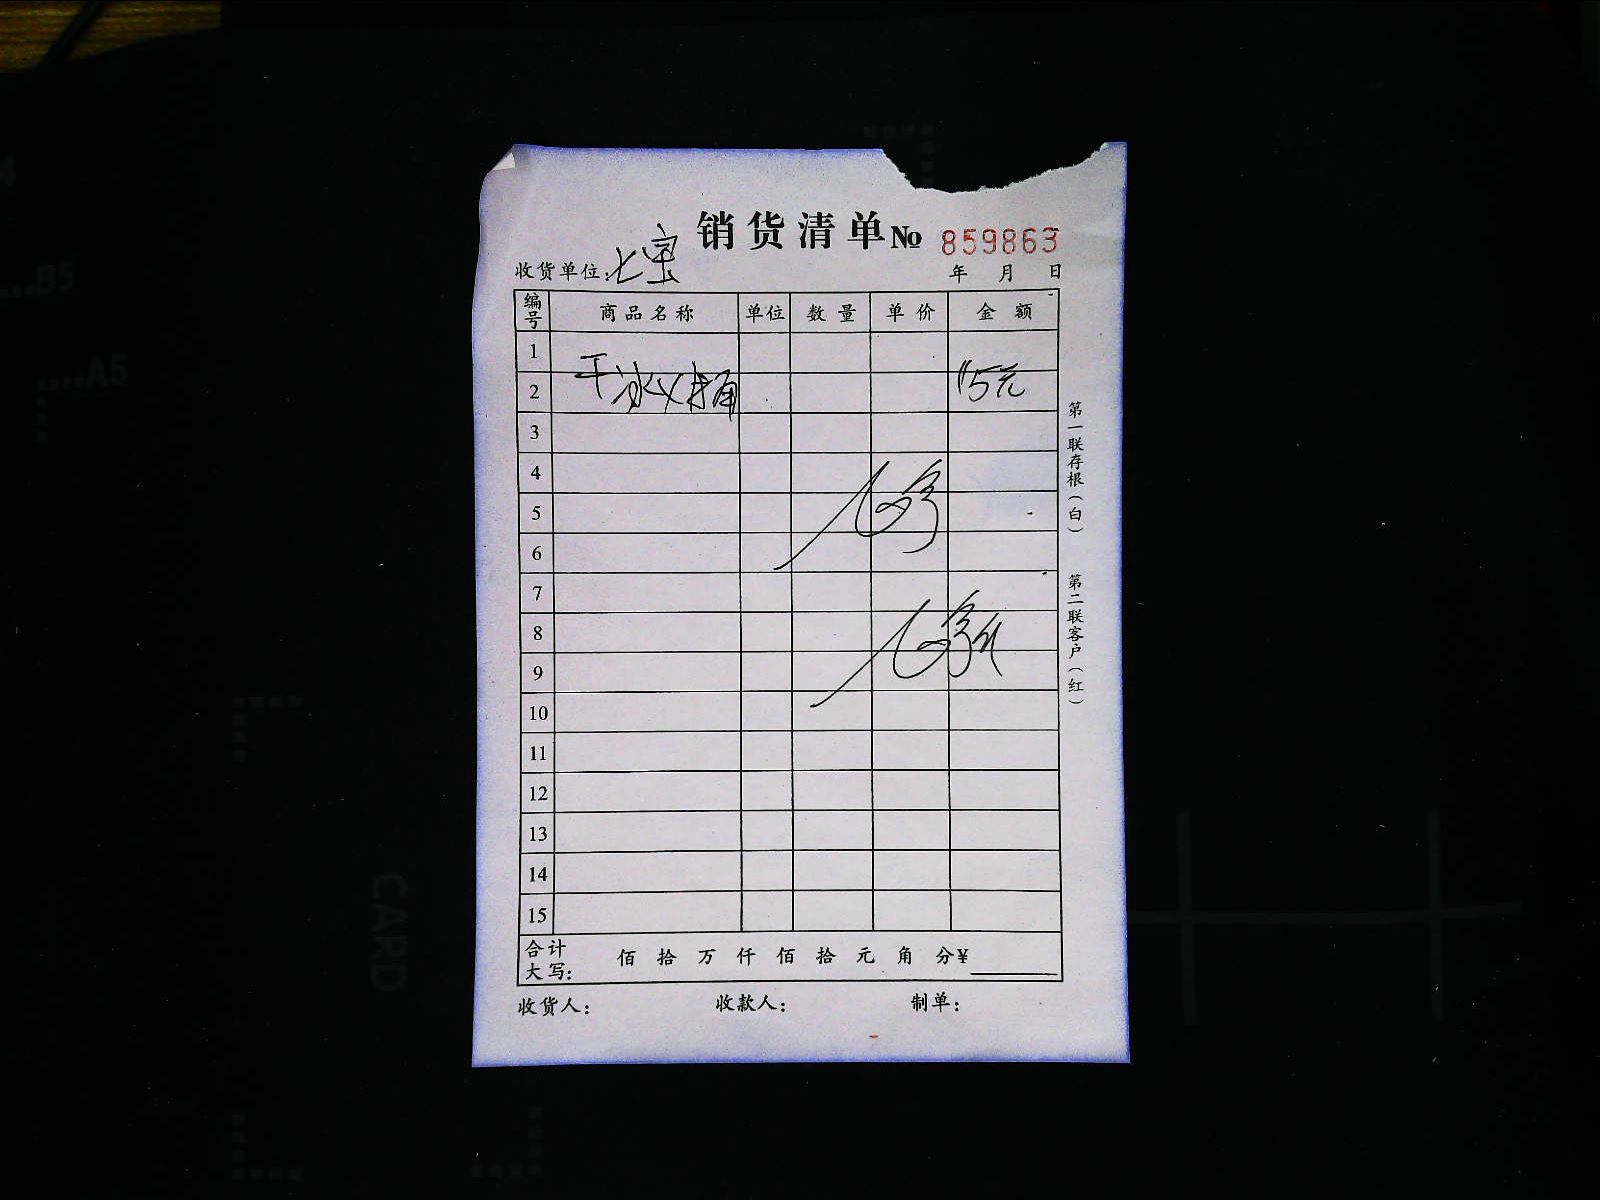 销货清单 № 859863
收货单位：七宝
年 月 日
编号 商品名称 单位 数量 单价 金额
1
2 干冰 桶 115元
3
4
5
6
7
8
9
10
11
12
13
14
15
合计大写： 佰 拾 万 仟 佰 拾 元 角 分 ¥
收货人： 收款人： 制单：
第一联存根（白）
第二联客户（红）
B5
A5
CARD